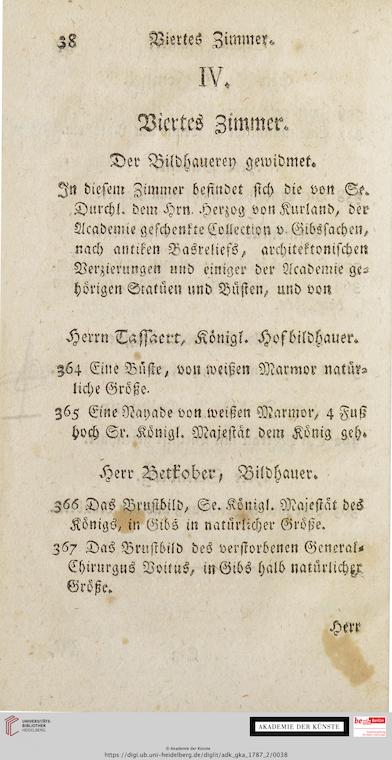 38 Viertes Zimmer.
IV.
Viertes Zimmer.
Der Bildhauerey gewidmet.
In diesem Zimmer befindet sich die von Se.
Durchl. dem Hrn. Herzog von Kurland, der
Academie geschenkte Collection v. Gibssachen,
nach antiken Basreliefs, architektonischen
Verzierungen und einiger der Academie ge-
hörigen Statüen und Büsten, und von
Herrn Tassaert, Königl. Hofbildhauer.
364 Eine Büste, von weißen Marmor natür-
liche Größe.
365 Eine Nayade von weißen Marmor, 4 Fuß
hoch Sr. Königl. Majestät dem König geh.
Herr Betkober, Bildhauer.
366 Das Brustbild, Se. Königl. Majestät des
Königs, in Gibs in natürlicher Größe.
367 Das Brustbild des verstorbenen General-
Chirurgus Voitus, in Gibs halb natürlicher
Größe.
Herr
UNIVERSITÄTS-
BIBLIOTHEK
HEIDELBERG
AKADEMIE DER KÜNSTE
be Berlin
© Akademie der Künste
https://digi.ub.uni-heidelberg.de/diglit/adk_gka_1787_2/0038